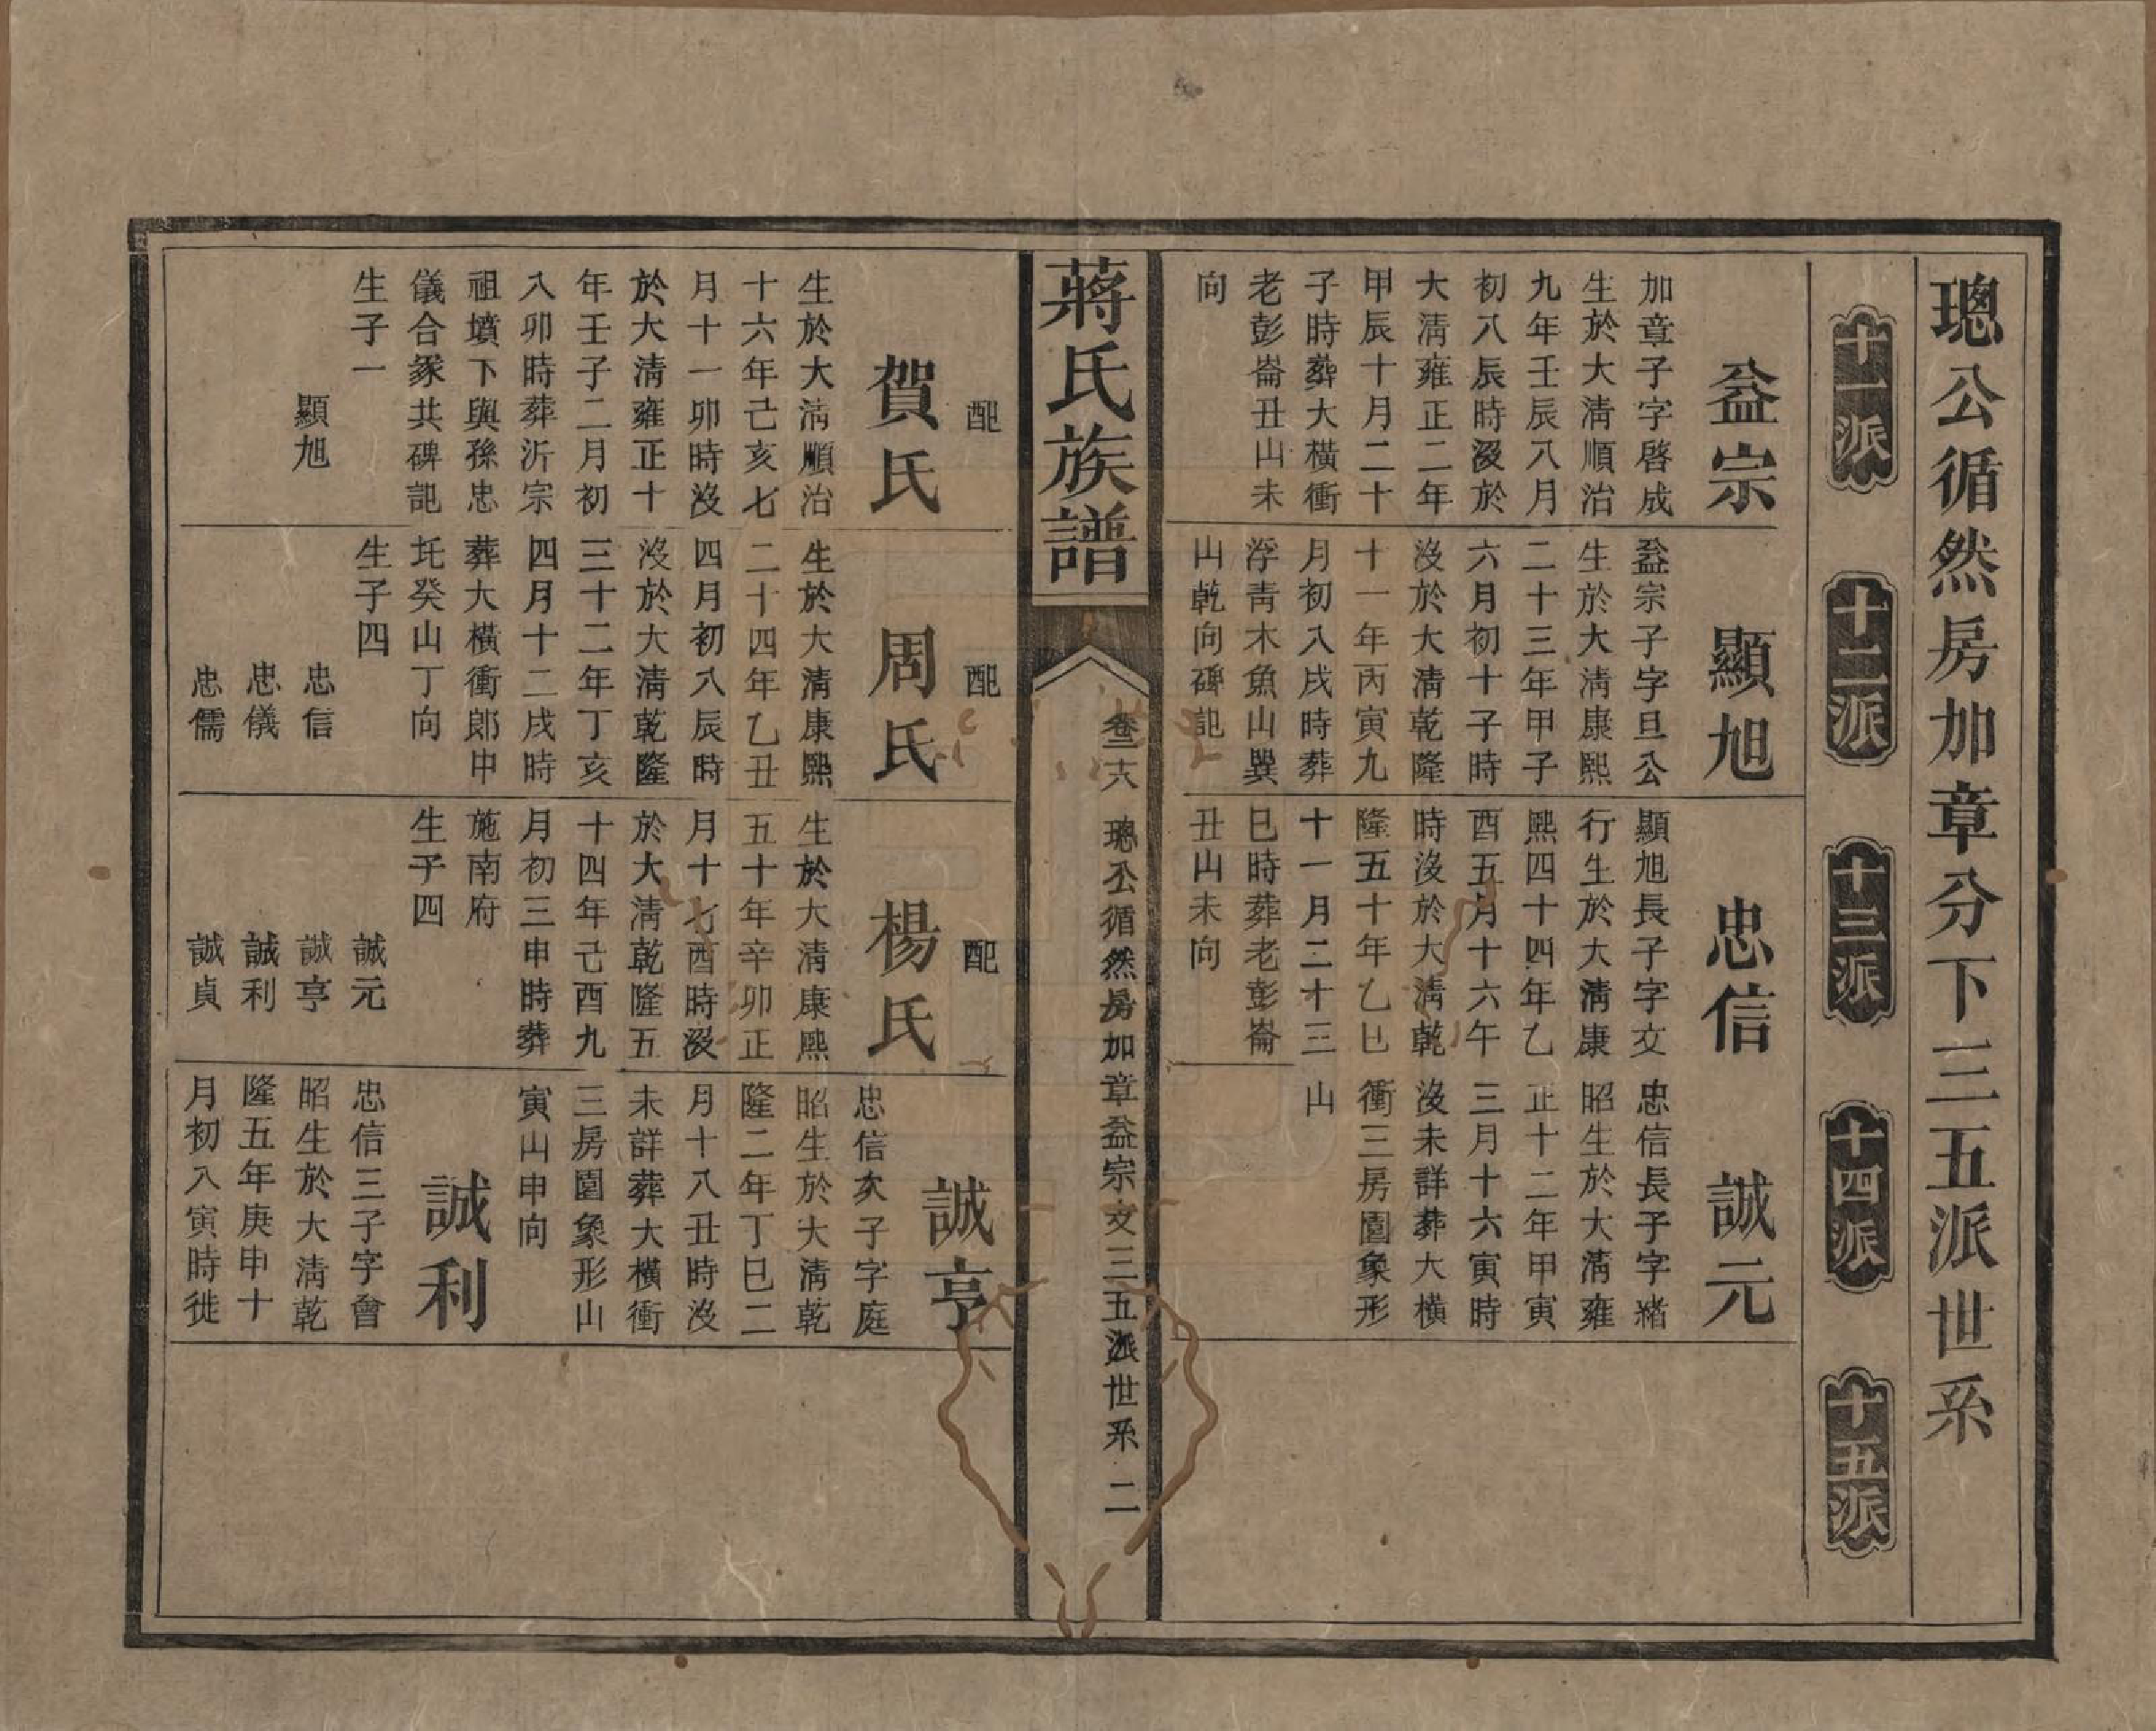 璁公循然房加章分下三五派世系
十一派
十二派
十三派
十四派
十五派
益宗
加章子字啓成
生於大清順治
九年壬辰八月
初八辰時沒於
大清雍正二年
甲辰十月二十
子時葬大橫衝
老彭崙丑山未
向
顯旭
益宗子字旦公
生於大清康熙
二十三年甲子
六月初十子時
沒於大清乾隆
十一年丙寅九
月初入戌時葬
浮靑木魚山巽
山乾向碑記
忠信
顯旭長子字文
行生於大清康
熙四十四年乙
酉五月十六午
時沒於大淸乾
隆五十年乙巳
十一月二十三
巳時葬老彭崙
丑山未向
誠元
忠信長子字緒
昭生於大淸雍
正十二年甲寅
三月十六寅時
沒未詳葬大橫
衝三房園象形
山
蔣氏族譜
卷二六
璁公循然房加章益宗文三五派世系
二
配
賀氏
生於大淸順治
十六年己亥七
月十一卯時沒
於大淸雍正十
年壬子二月初
八卯時葬沂宗
祖墳下與孫忠
儀合冢共碑記
生子一
顯旭
配
周氏
生於大清康熙
二十四年乙丑
四月初八辰時
沒於大淸乾隆
三十二年丁亥
四月十二戌時
葬大橫衝郞中
圫癸山丁向
生子四
忠信
忠儀
忠儒
配
楊氏
生於大清康熙
五十年辛卯正
月十七酉時沒
於大淸乾隆五
十四年己酉九
月初三申時葬
施南府
生子四
誠元
誠亨
誠利
誠貞
誠亨
忠信次子字庭
昭生於大淸乾
隆二年丁巳二
月十八丑時沒
未詳葬大橫衝
三房園象形山
寅山申向
誠利
忠信三子字會
昭生於大淸乾
隆五年庚申十
月初入寅時徙